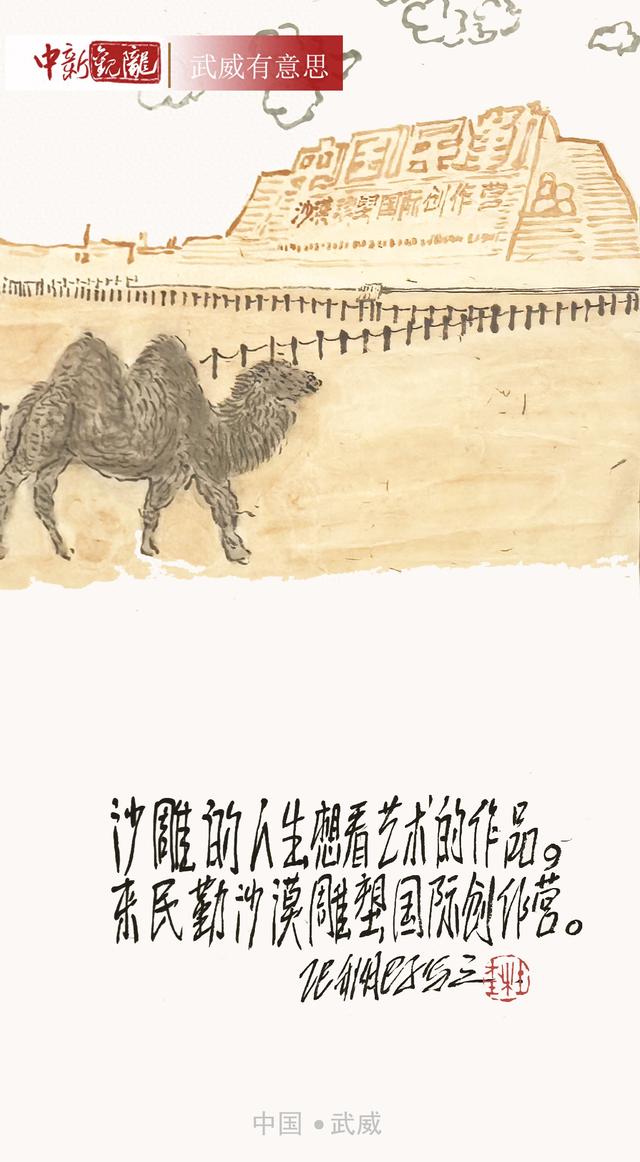 中新觀隴
武威有意思
中国民勤
沙漠雕塑国际创作营
沙雕的人生想看艺术的作品。
来民勤沙漠雕塑国际创作营。
中国●武威